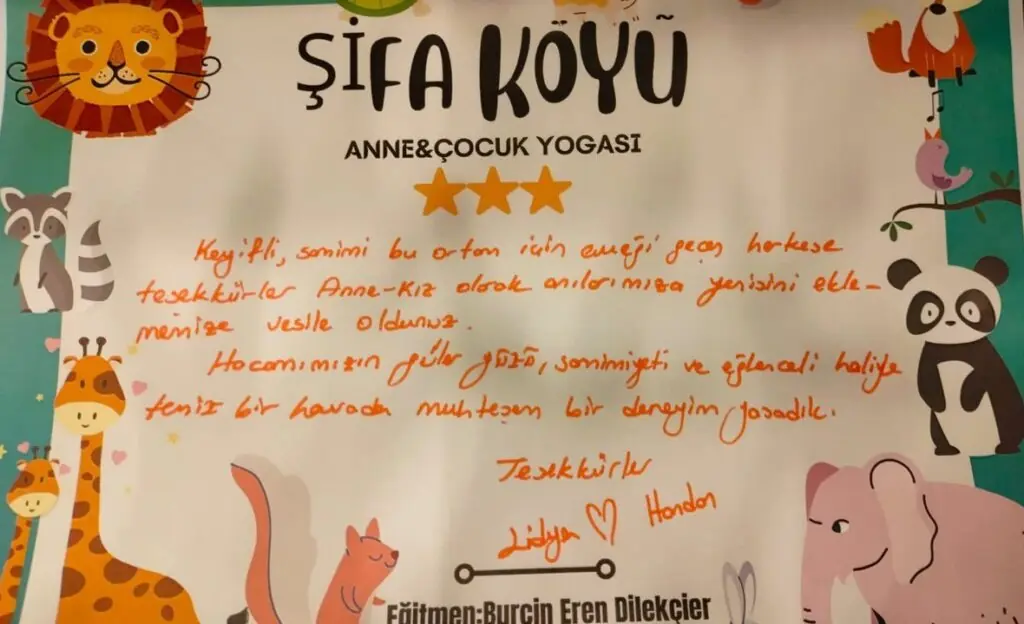 ŞİFA KÖYÜ
ANNE&ÇOCUK YOGASI
Keyifli, samimi bu ortam için emeği geçen herkese
teşekkürler Anne-Kız olarak anılarımıza yenisini ekle-
memize vesile oldunuz.
Hocamımızın güler yüzü, samimiyeti ve eğlenceli haliyle
temiz bir havada muhteşem bir deneyim yaşadık.
Teşekkürler
Lidya ♡ Handan
Eğitmen:Burçin Eren Dilekçier